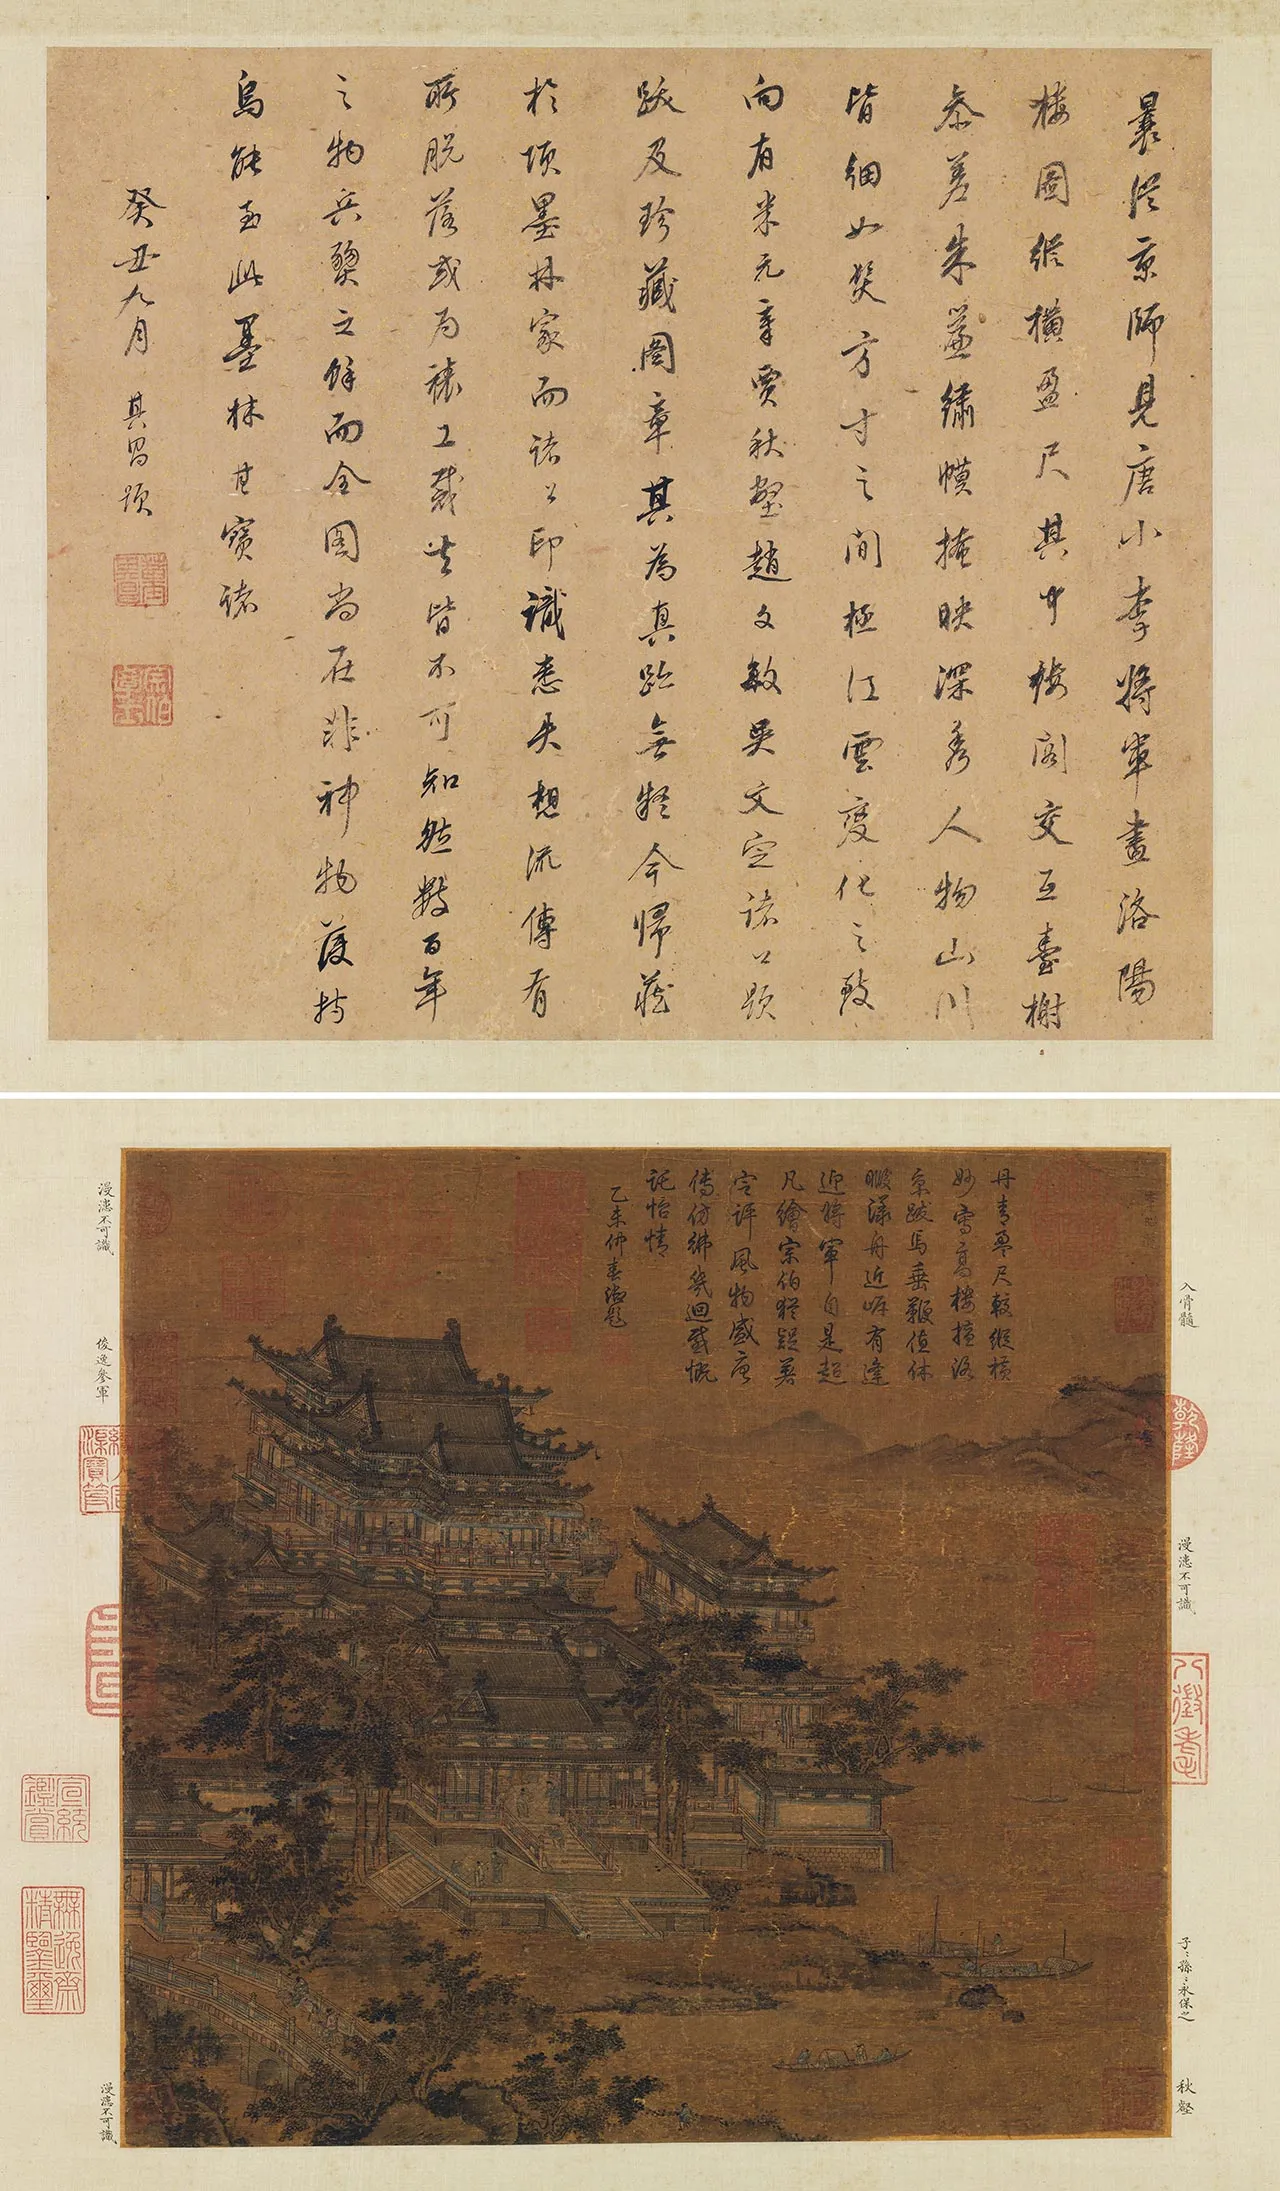 曩從京師見唐小李將軍畫洛陽
樓圖縱橫盈尺其中樓閣交互臺榭
參差朱簾繡幙掩映深秀人物山川
皆細如髮方寸之間極江雲變化之致
向有米元章賈秋壑趙文敏吳文定諸公題
跋及珍藏圖章其為真跡無疑今歸藏
於項墨林家而諸公印識悉失想流傳有
所脫落或為裱工裁去皆不可知然數百年
之物兵燹之餘而全圖尚在非神物護持
烏能至此墨林其寶諸
癸丑九月 其昌題
丹青盈尺較縱橫
妙寫高樓擅洛
京跋馬垂鞭值休
暇漾舟近岸有逢
迎將軍自是超
凡繪宗伯猶疑著
定評風物盛唐
傳仿彿幾迴感慨
託怡情
乙未仲春御題
入骨髓
乾隆
漫漶不可識
八徵耄念
子〻孫〻永保之
秋壑
漫漶不可識
俊逸參軍
宣統鑑賞
無逸齋精鑒璽
漫漶不可識